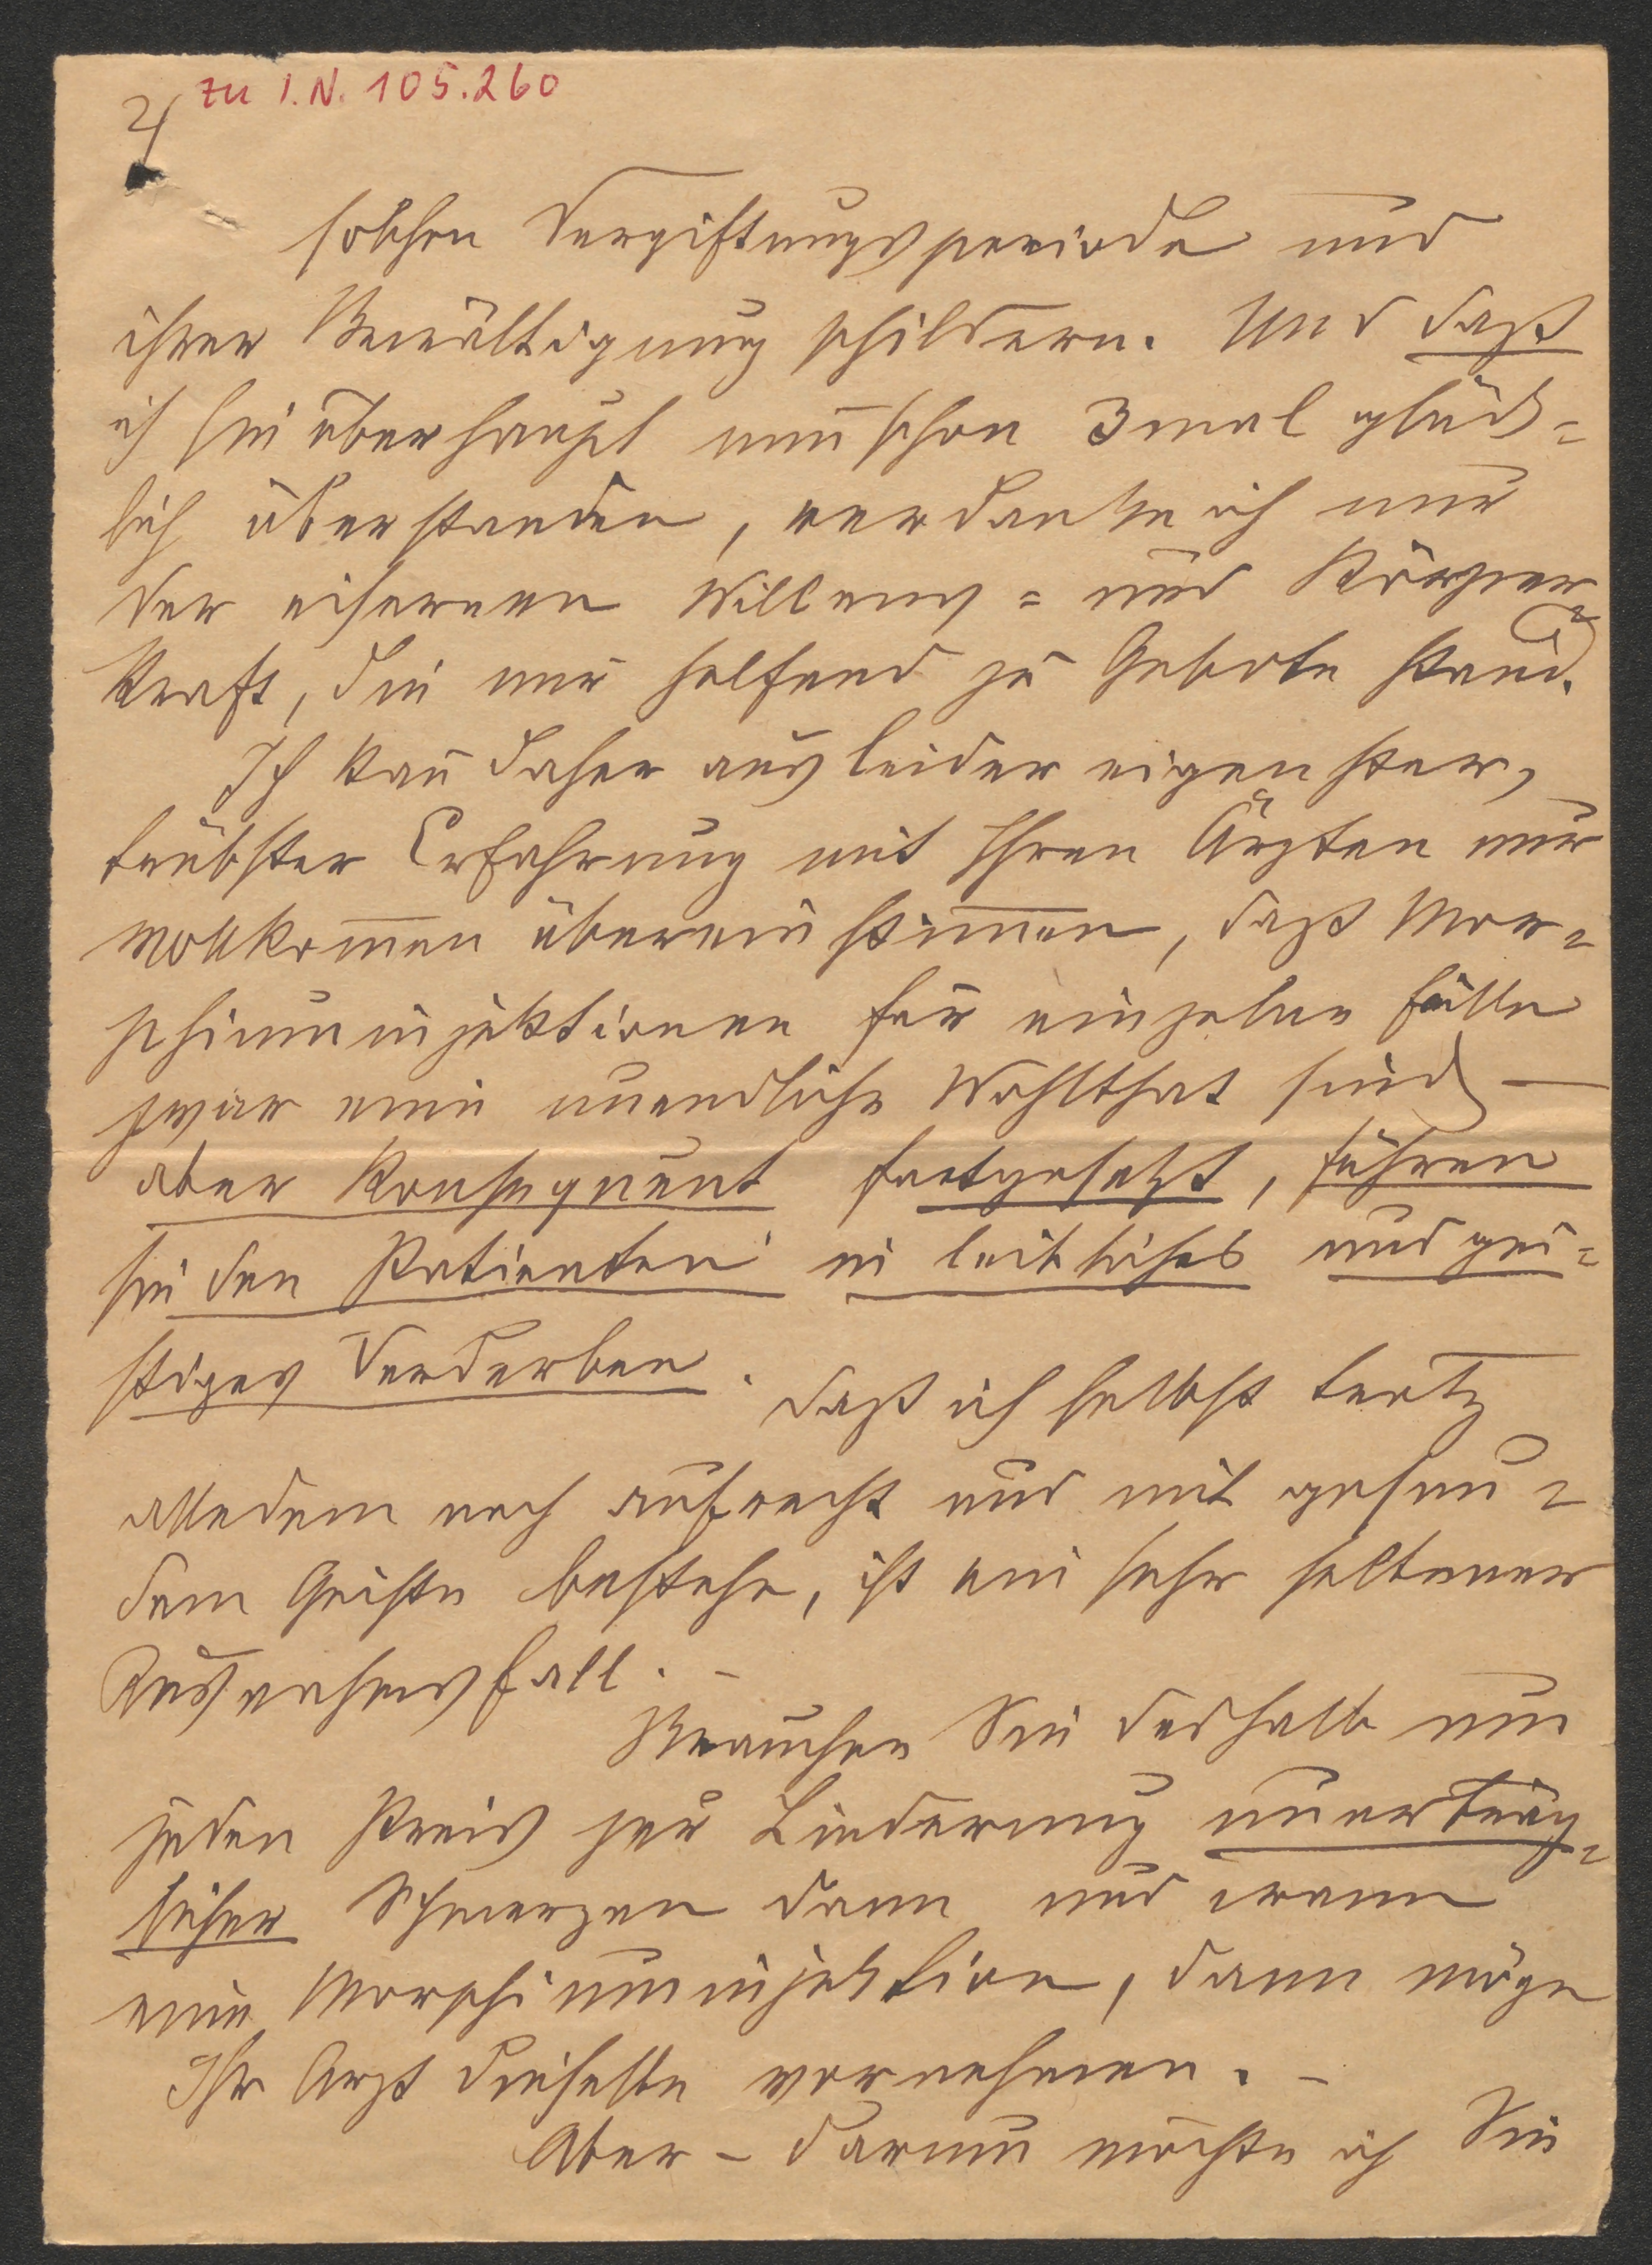 zu I.N. 105.260
2/
solchen Vergiftungsperiode und
ihrer Bewältigung schildern. Und daß
ich sie überhaupt nun schon 3mal glück=
lich überstanden, verdanke ich nur
der eisernen Willens= und Körper=
kraft, die mir helfend zu Gebote stand.
Ich kan̄ daher aus leider eigenster,
trübster Erfahrung mit Ihren Ärzten nur
vollkom̄en übereinstim̄en, daß Mor=
phiuminjektionen für einzelne Fälle
zwar eine unendliche Wohlthat sind –
aber konsequent fortgesetzt, führen
sie den Patienten in leibliches und gei=
stiges Verderben. Daß ich selbst trotz
alledem noch aufrecht und mit gesun=
dem Geiste bestehe, ist ein sehr seltener
Ausnahmsfall. –
Brauchen Sie deshalb um
jeden Preis zur Linderung unerträg=
licher Schmerzen dann und wann
eine Morphiuminjektion, dann möge
Ihr Arzt dieselbe vornehmen. –
Aber – darum möchte ich Sie